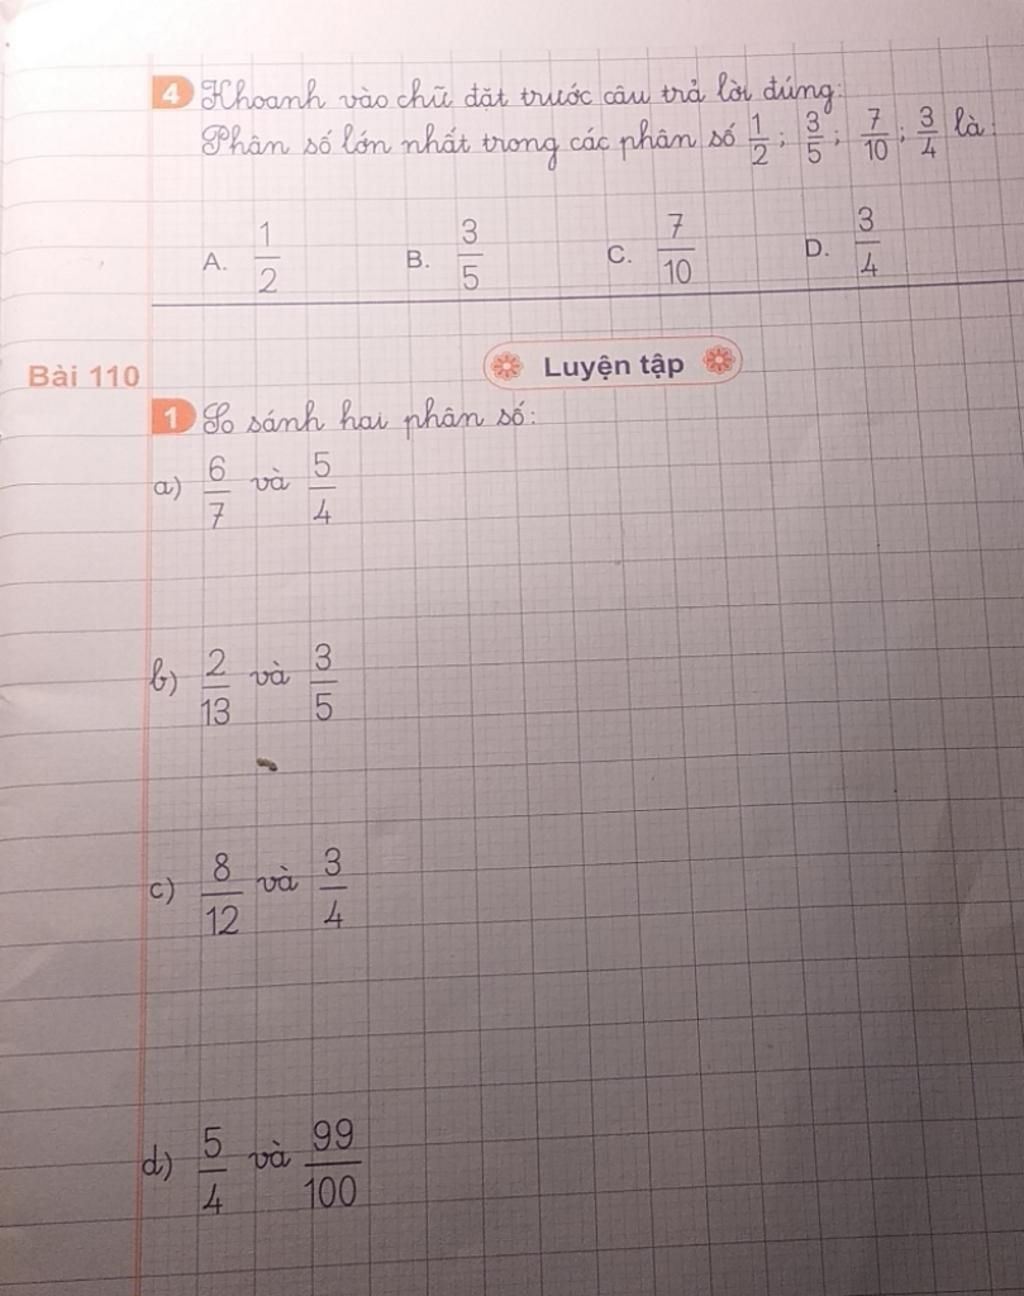 4 Khoanh vào chữ đặt trước câu trả lời đúng:
Phân số lớn nhất trong các phân số 1/2; 3/5; 7/10; 3/4 là:
A. 1/2 B. 3/5 C. 7/10 D. 3/4
Bài 110 Luyện tập
1 So sánh hai phân số:
a) 6/7 và 5/4
b) 2/13 và 3/5
c) 8/12 và 3/4
d) 5/4 và 99/100